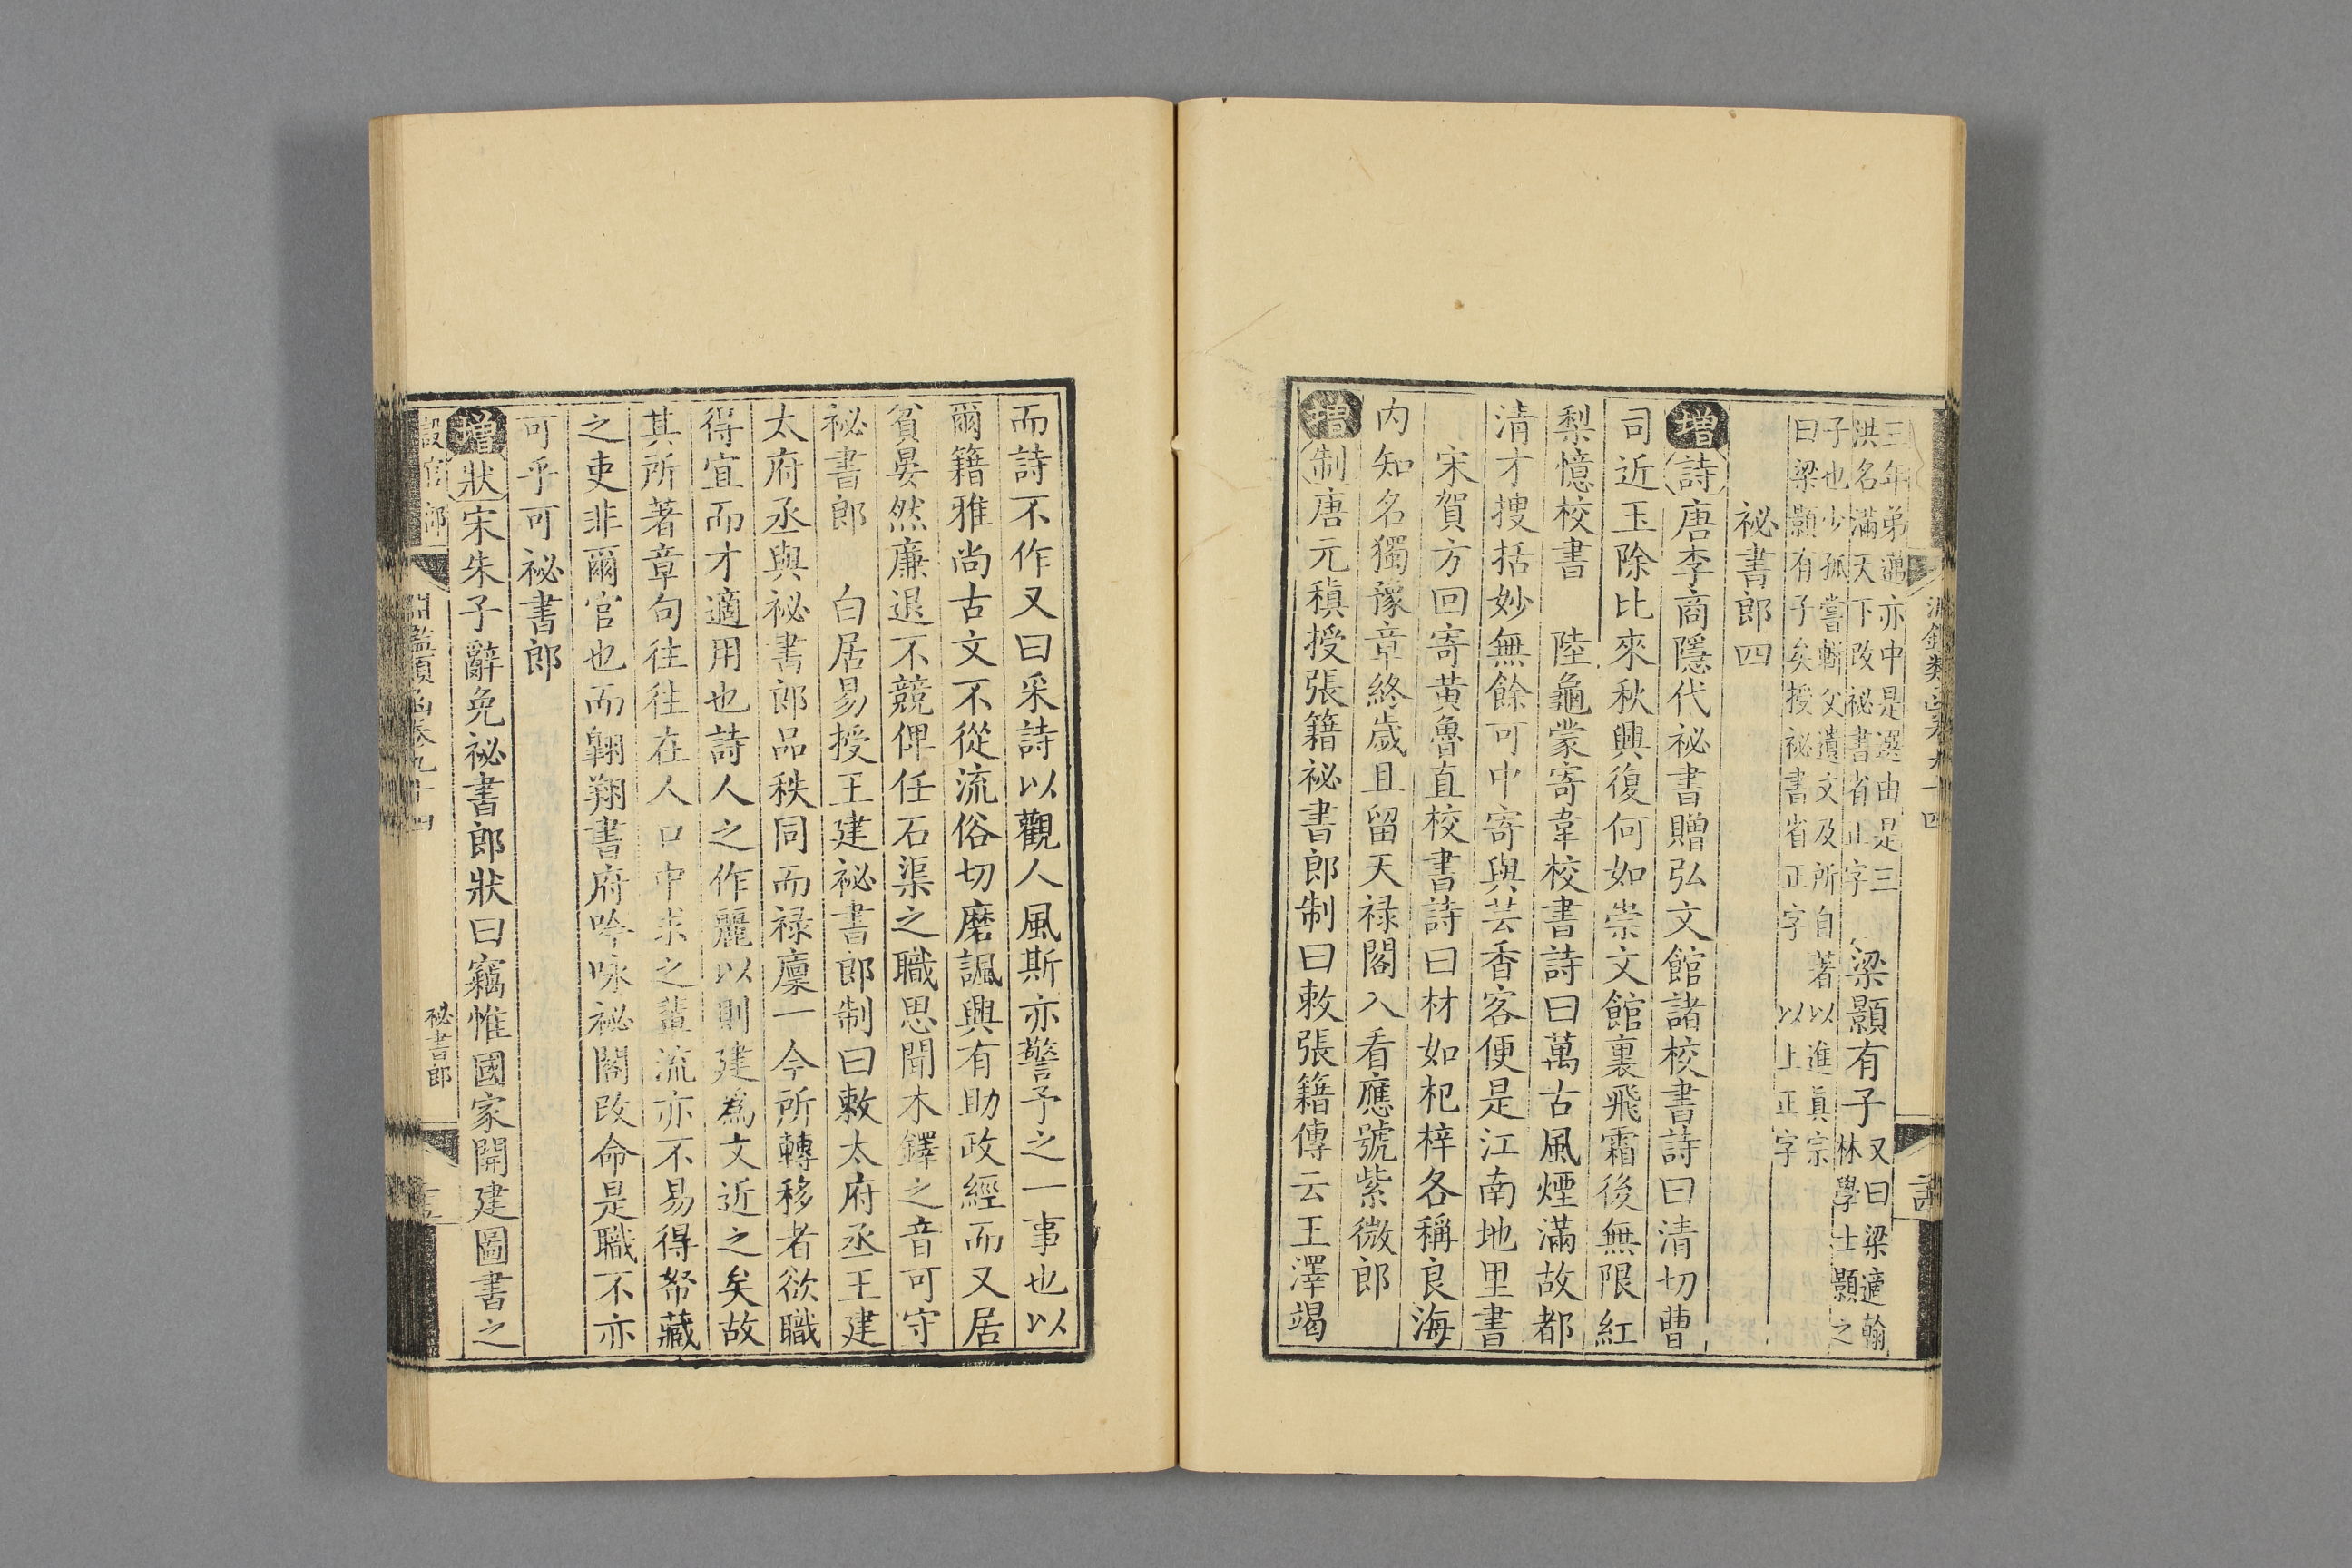 三年弟遇亦中是選由是三
洪名滿天下改祕書省正字
梁顥有子
又曰梁適翰
林學士顥之
子也少孤嘗輯父遺文及所自著以進真宗
曰梁顥有子矣授祕書省正字 以上正字
祕書郎四
增詩唐李商隱代祕書贈弘文館諸校書詩曰清切曹
司近玉除比來秋興復何如崇文館裏飛霜後無限紅
梨憶校書 陸龜蒙寄韋校書詩曰萬古風煙滿故都
清才搜括妙無餘可中寄與芸香客便是江南地里書
宋賀方回寄黃魯直校書詩曰材如杞梓各稱良海
內知名獨豫章終歲且留天祿閣入看應號紫微郎
增制唐元稹授張籍祕書郎制曰敕張籍傳云王澤竭
而詩不作又曰采詩以觀人風斯亦警予之一事也以
爾籍雅尚古文不從流俗切磨諷興有助政經而又居
貧晏然廉退不競俾任石渠之職思聞木鐸之音可守
祕書郎 白居易授王建祕書郎制曰敕太府丞王建
太府丞與祕書郎品秩同而祿廩一今所轉移者欲職
得宜而才適用也詩人之作麗以則建為文近之矣故
其所著章句往往在人口中求之輩流亦不易得帑藏
之吏非爾官也而翱翔書府吟咏祕閣改命是職不亦
可乎可祕書郎
增狀宋朱子辭免祕書郎狀曰竊惟國家開建圖書之
設官部
淵鑑類函卷九十四
祕書郎